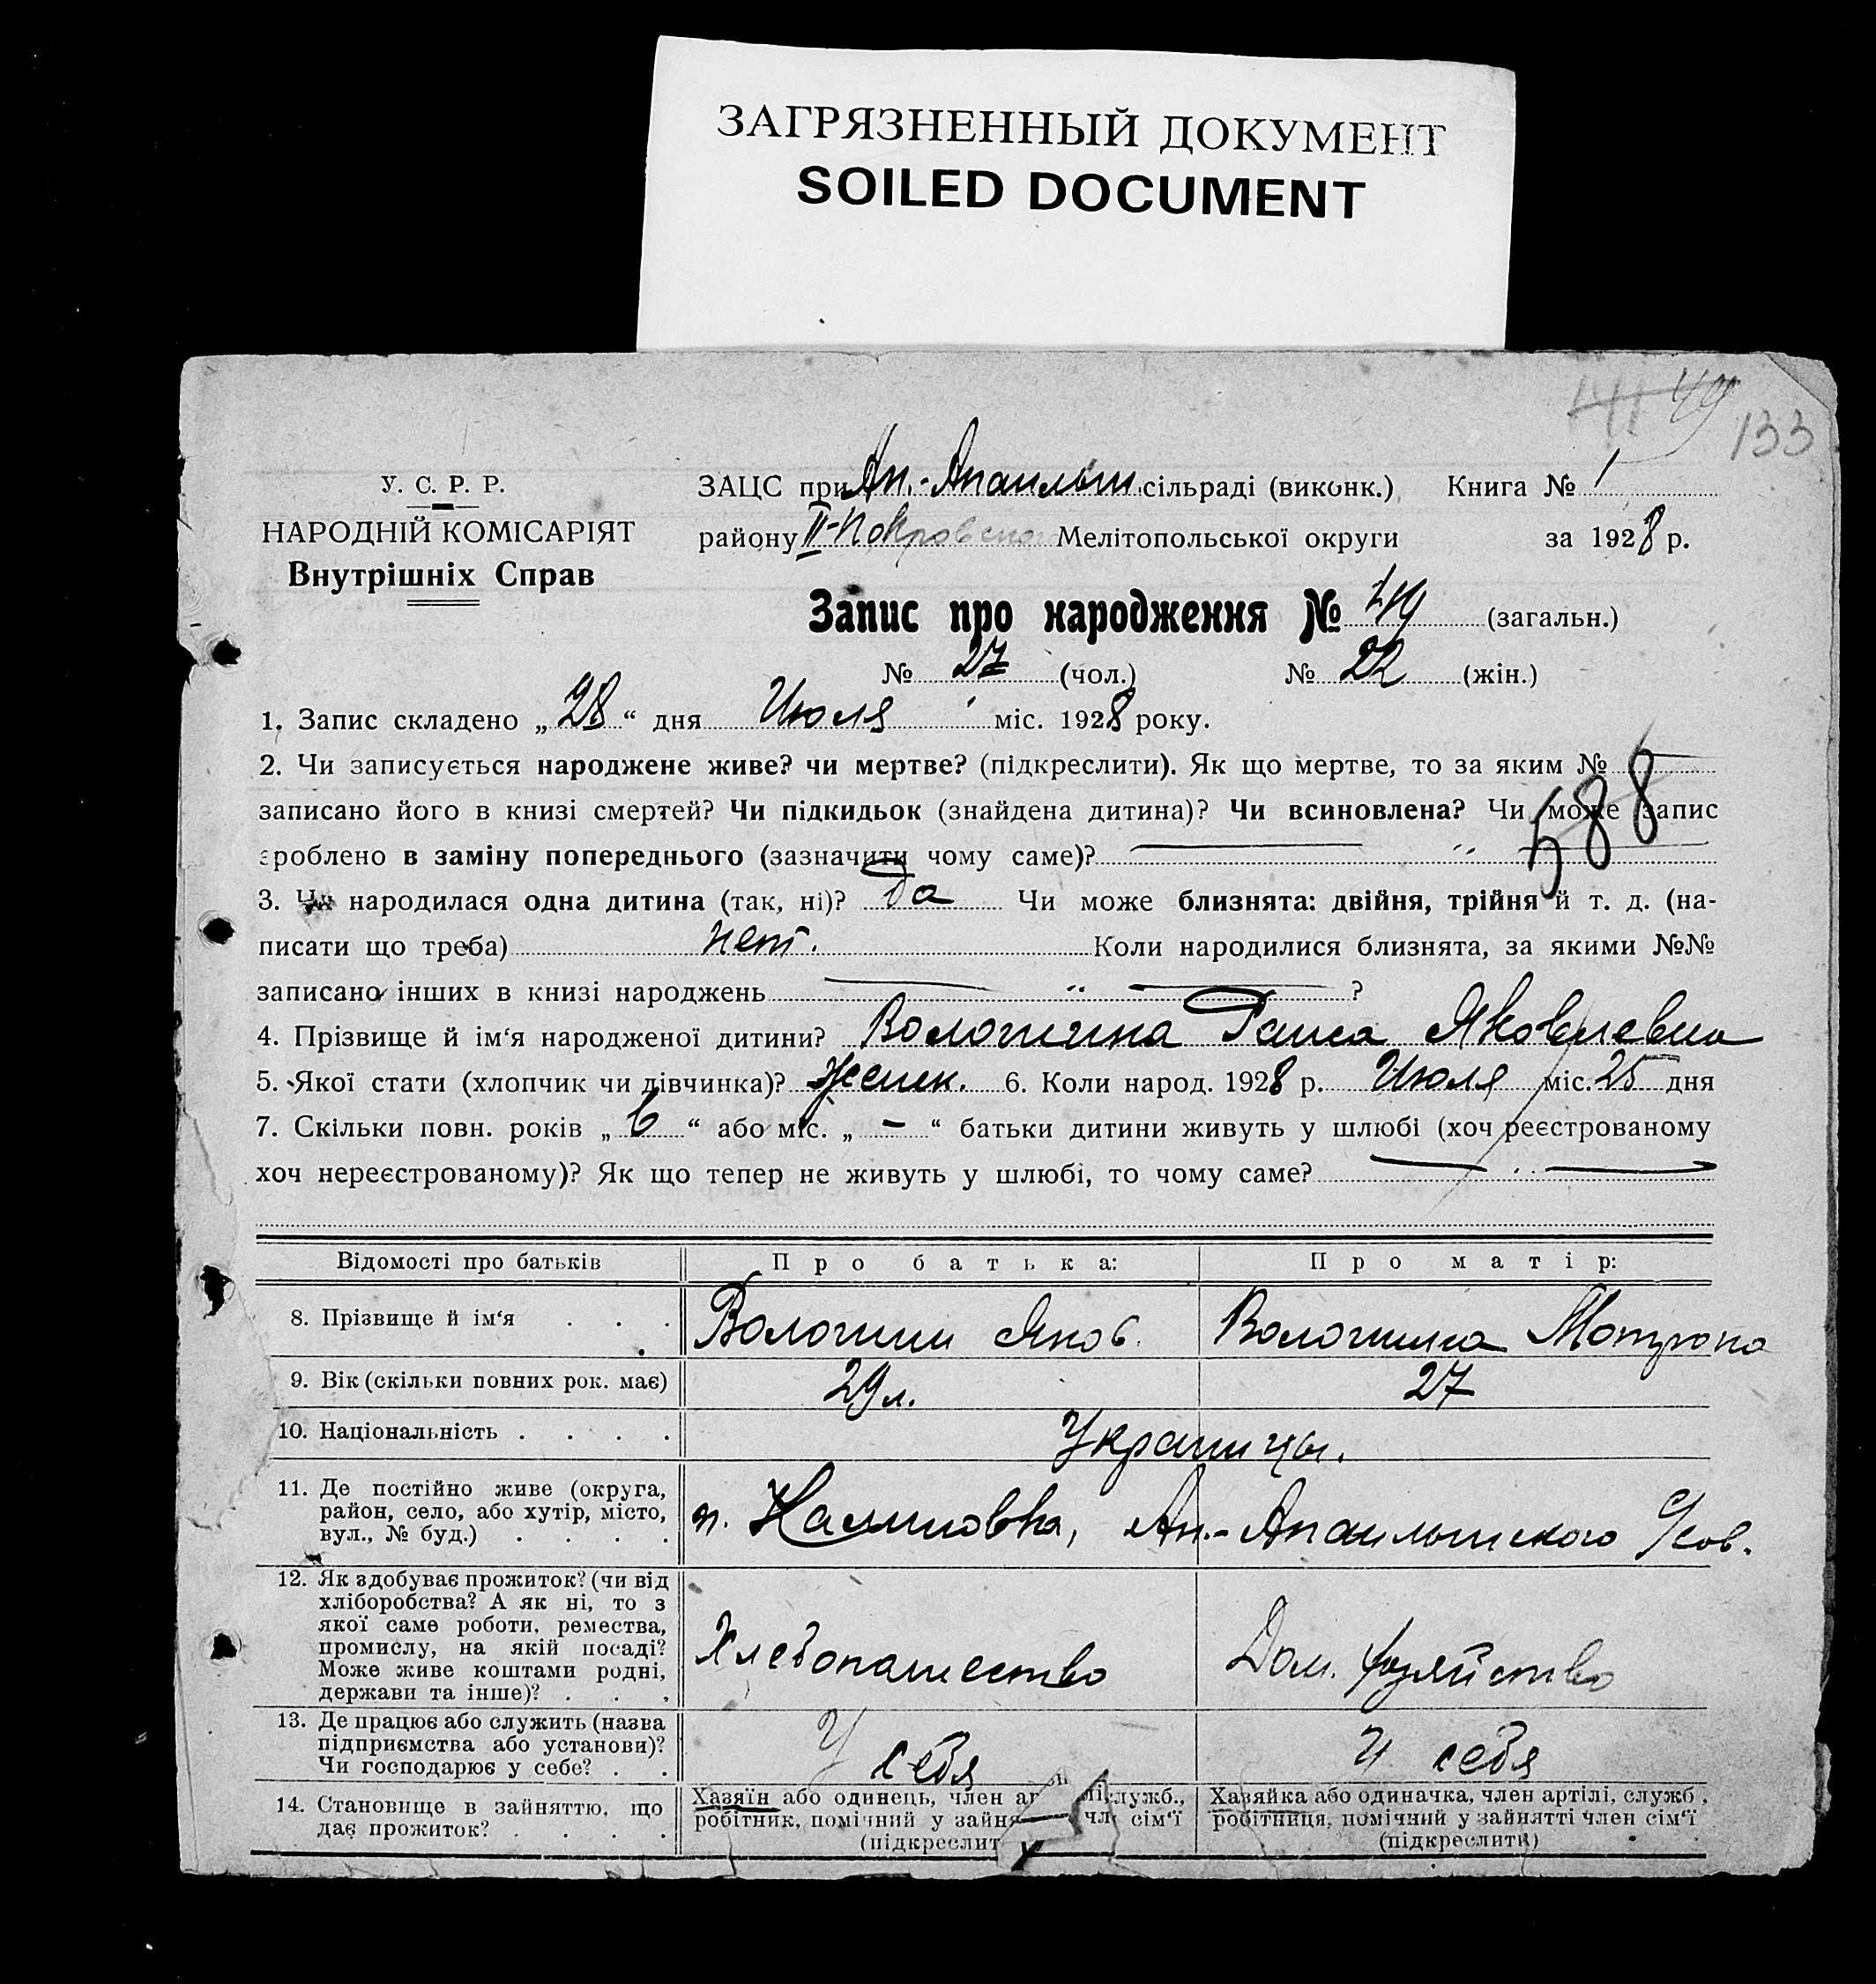 ЗАГРЯЗНЕННЫЙ ДОКУМЕНТ
SOILED DOCUMENT
49
133
У. С. Р. Р.
НАРОДНІЙ КОМІСАРІЯТ
Внутрішніх Справ
ЗАЦС при Ан.-Апаильш сільраді (виконк.) Книга № 1
району II-Покровско Мелітопольської округи за 1928 р.
Запис про народження № 49 (загальн.)
№ 27 (чол.) № 22 (жін.)
1. Запис складено „28“ дня Июля міс. 1928 року.
2. Чи записується народжене живе? чи мертве? (підкреслити). Як що мертве, то за яким №
записано його в книзі смертей? Чи підкидьок (знайдена дитина)? Чи всиновлена? Чи може запис
зроблено в заміну попереднього (зазначити чому саме)?
588
3. Чи народилася одна дитина (так, ні)? Да Чи може близнята: двійня, трійня й т. д. (на-
писати що треба) нет. Коли народилися близнята, за якими №№
записано інших в книзі народжень ?
4. Прізвище й ім‘я народженої дитини? Волошина Раиса Яковлевна
5. Якої стати (хлопчик чи дівчинка)? Женск. 6. Коли народ. 1928 р. Июля міс. 25 дня
7. Скільки повн. років „6“ або міс. „-“ батьки дитини живуть у шлюбі (хоч реєстрованому
хоч нереєстрованому)? Як що тепер не живуть у шлюбі, то чому саме?
Відомості про батьків Про батька: Про матір:
8. Прізвище й ім‘я . . . Волошин Яков. Волошина Мотрона
9. Вік (скільки повних рок. має) 29 л. 27
10. Національність . . . . Украинцы.
11. Де постійно живе (округа,
район, село, або хутір, місто,
вул., № буд.) . . . .
п. Калиновка, Ан.-Апаильшского Усов.
12. Як здобуває прожиток? (чи від
хліборобства? А як ні, то з
якої саме роботи, ремества,
промислу, на якій посаді?
Може живе коштами родні,
держави та інше)? . . .
Хлебопашество Дом. хозяйство
13. Де працює або служить (назва
підприємства або установи)?
Чи господарює у себе? . .
У себя У себя
14. Становище в зайняттю, що
дає прожиток? . . . .
Хазяїн або одинець, член служб.,
робітник, помічний у сім‘ї
(підкреслит
Хазяйка або одиначка, член артілі, служб.,
робітниця, помічний у зайнятті член сім‘ї
(підкреслити)